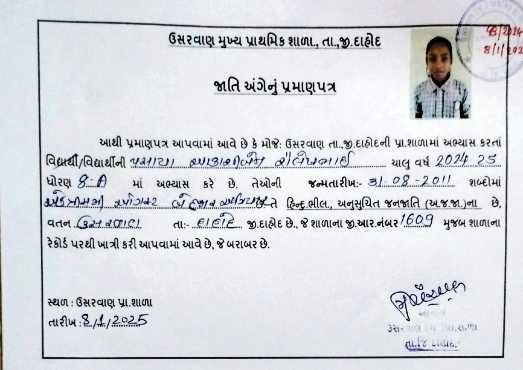 ઉસરવાણ મુખ્ય પ્રાથમિક શાળા., તા.,જી.દાહોદ
જાતિ અંગેનું પ્રમાણપત્ર
આથી પ્રમાણપત્ર આપવામાં આવે છે કે મોજે: ઉસરવાણ તા.,જી.દાહોદની પ્રા.શાળામાં અભ્યાસ કરતાં
વિદ્યાર્થી/વિદ્યાર્થીની ચાલુ વર્ષ 2024 25
ધોરણ 8-A માં અભ્યાસ કરે છે. તેઓની જન્મતારીખ:- 31-08-2011 શબ્દોમાં
તે હિન્દુ ભીલ, અનુસુચિત જનજાતિ (અ.જ.જા.)ના છે,
વતન ઉસરવાણ તા:- દાહોદ જી.દાહોદ છે, જે શાળાના જી.આર.નંબર 1609 મુજબ શાળાના
રેકોર્ડ પરથી ખાત્રી કરી આપવામાં આવે છે, જે બરાબર છે.
સ્થળ : ઉસરવાણ પ્રા.શાળા
તારીખ : 8/1/2025